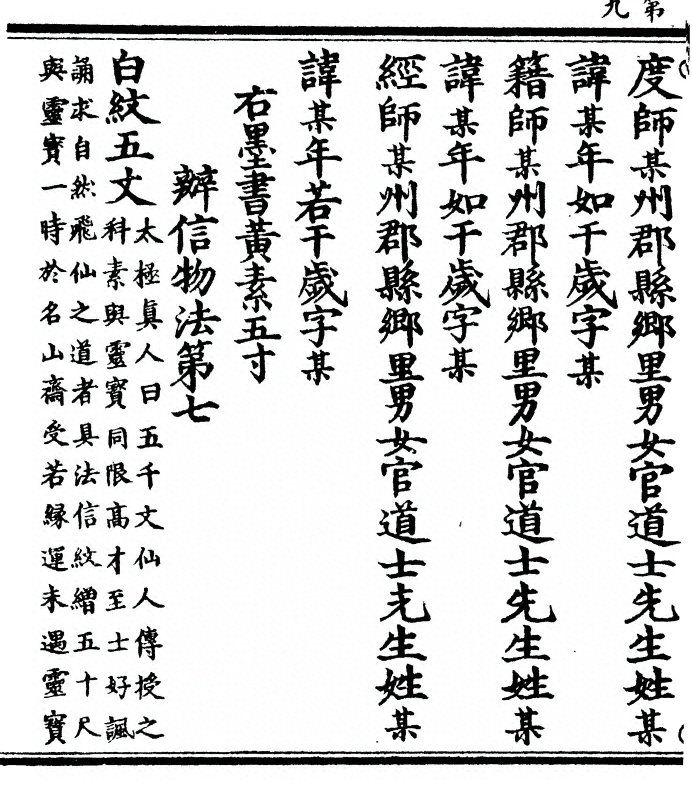 第九
度師某州郡縣鄉里男女官道士先生姓某
諱某年如干歲字某
籍師某州郡縣鄉里男女官道士先生姓某
諱某年如干歲字某
經師某州郡縣鄉里男女官道士先生姓某
諱某年若干歲字某
右墨書黃素五寸
辯信物法第七
白紋五丈
太極眞人曰五千文仙人傳授之
科素與靈寶同限高才至士好諷
誦求自然飛仙之道者具法信紋繒五十尺
與靈寶一時於名山齋受若縁運未遇靈寶